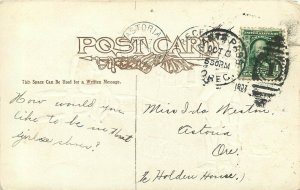 ASTORIA
POST CARD
GRANTS PASS
OCT
8 30 AM
REC.
1907
This Space Can Be Used for a Written Message.
How would you
like to be in that
Miss Ida Weston,
Astoria
Ore.
(The Holden House.)